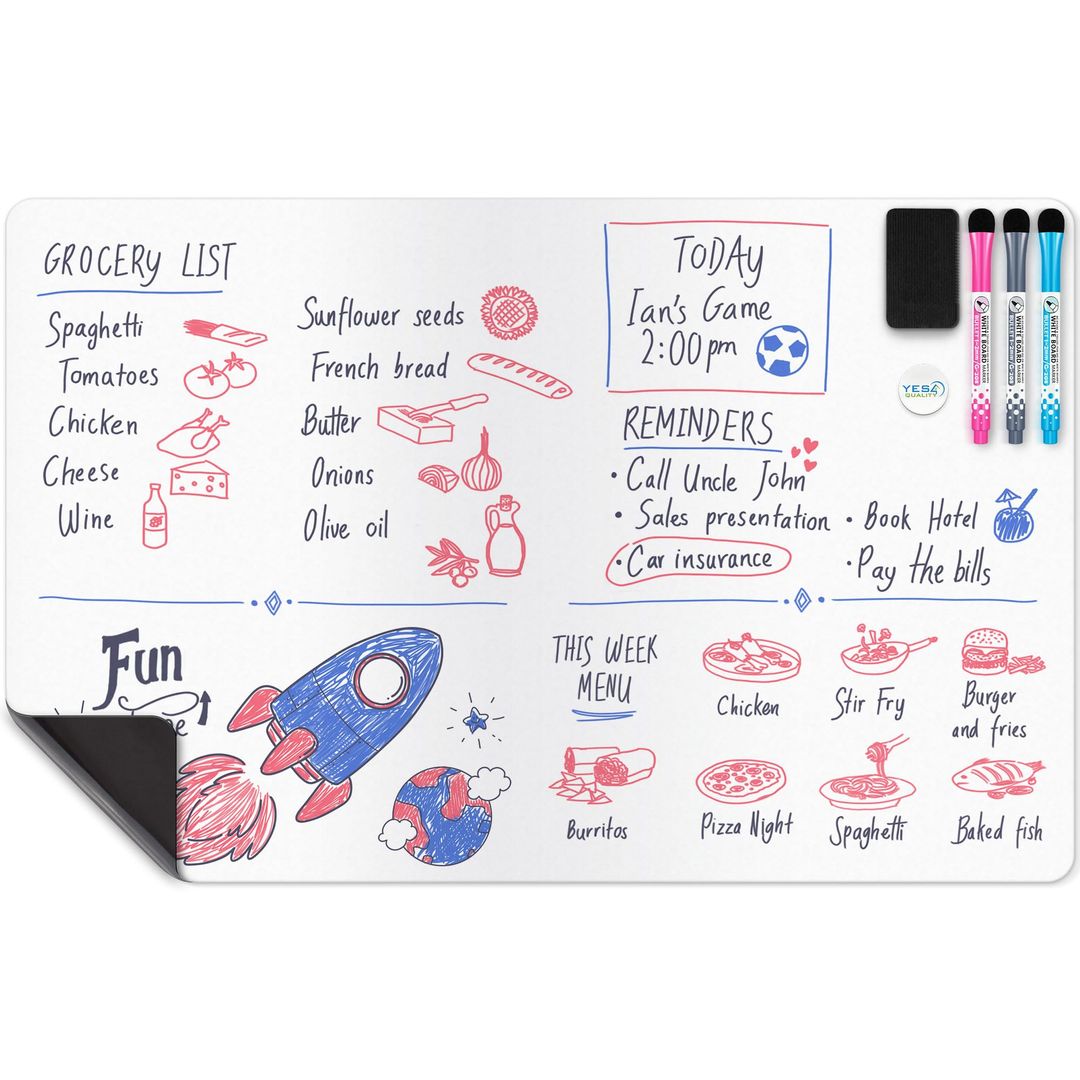 GROCERY LIST
Spaghetti
Tomatoes
Chicken
Cheese
Wine
Sunflower seeds
French bread
Butter
Onions
Olive oil
TODAY
Ian's Game
2:00pm
YES4
QUALITY
WHITE BOARD
MARKER
WHITE BOARD
MARKER
WHITE BOARD
MARKER
REMINDERS
• Call Uncle John
• Sales presentation
• Car insurance
• Book Hotel
• Pay the bills
Fun
THIS WEEK
MENU
Chicken
Stir Fry
Burger
and fries
Burritos
Pizza Night
Spaghetti
Baked fish